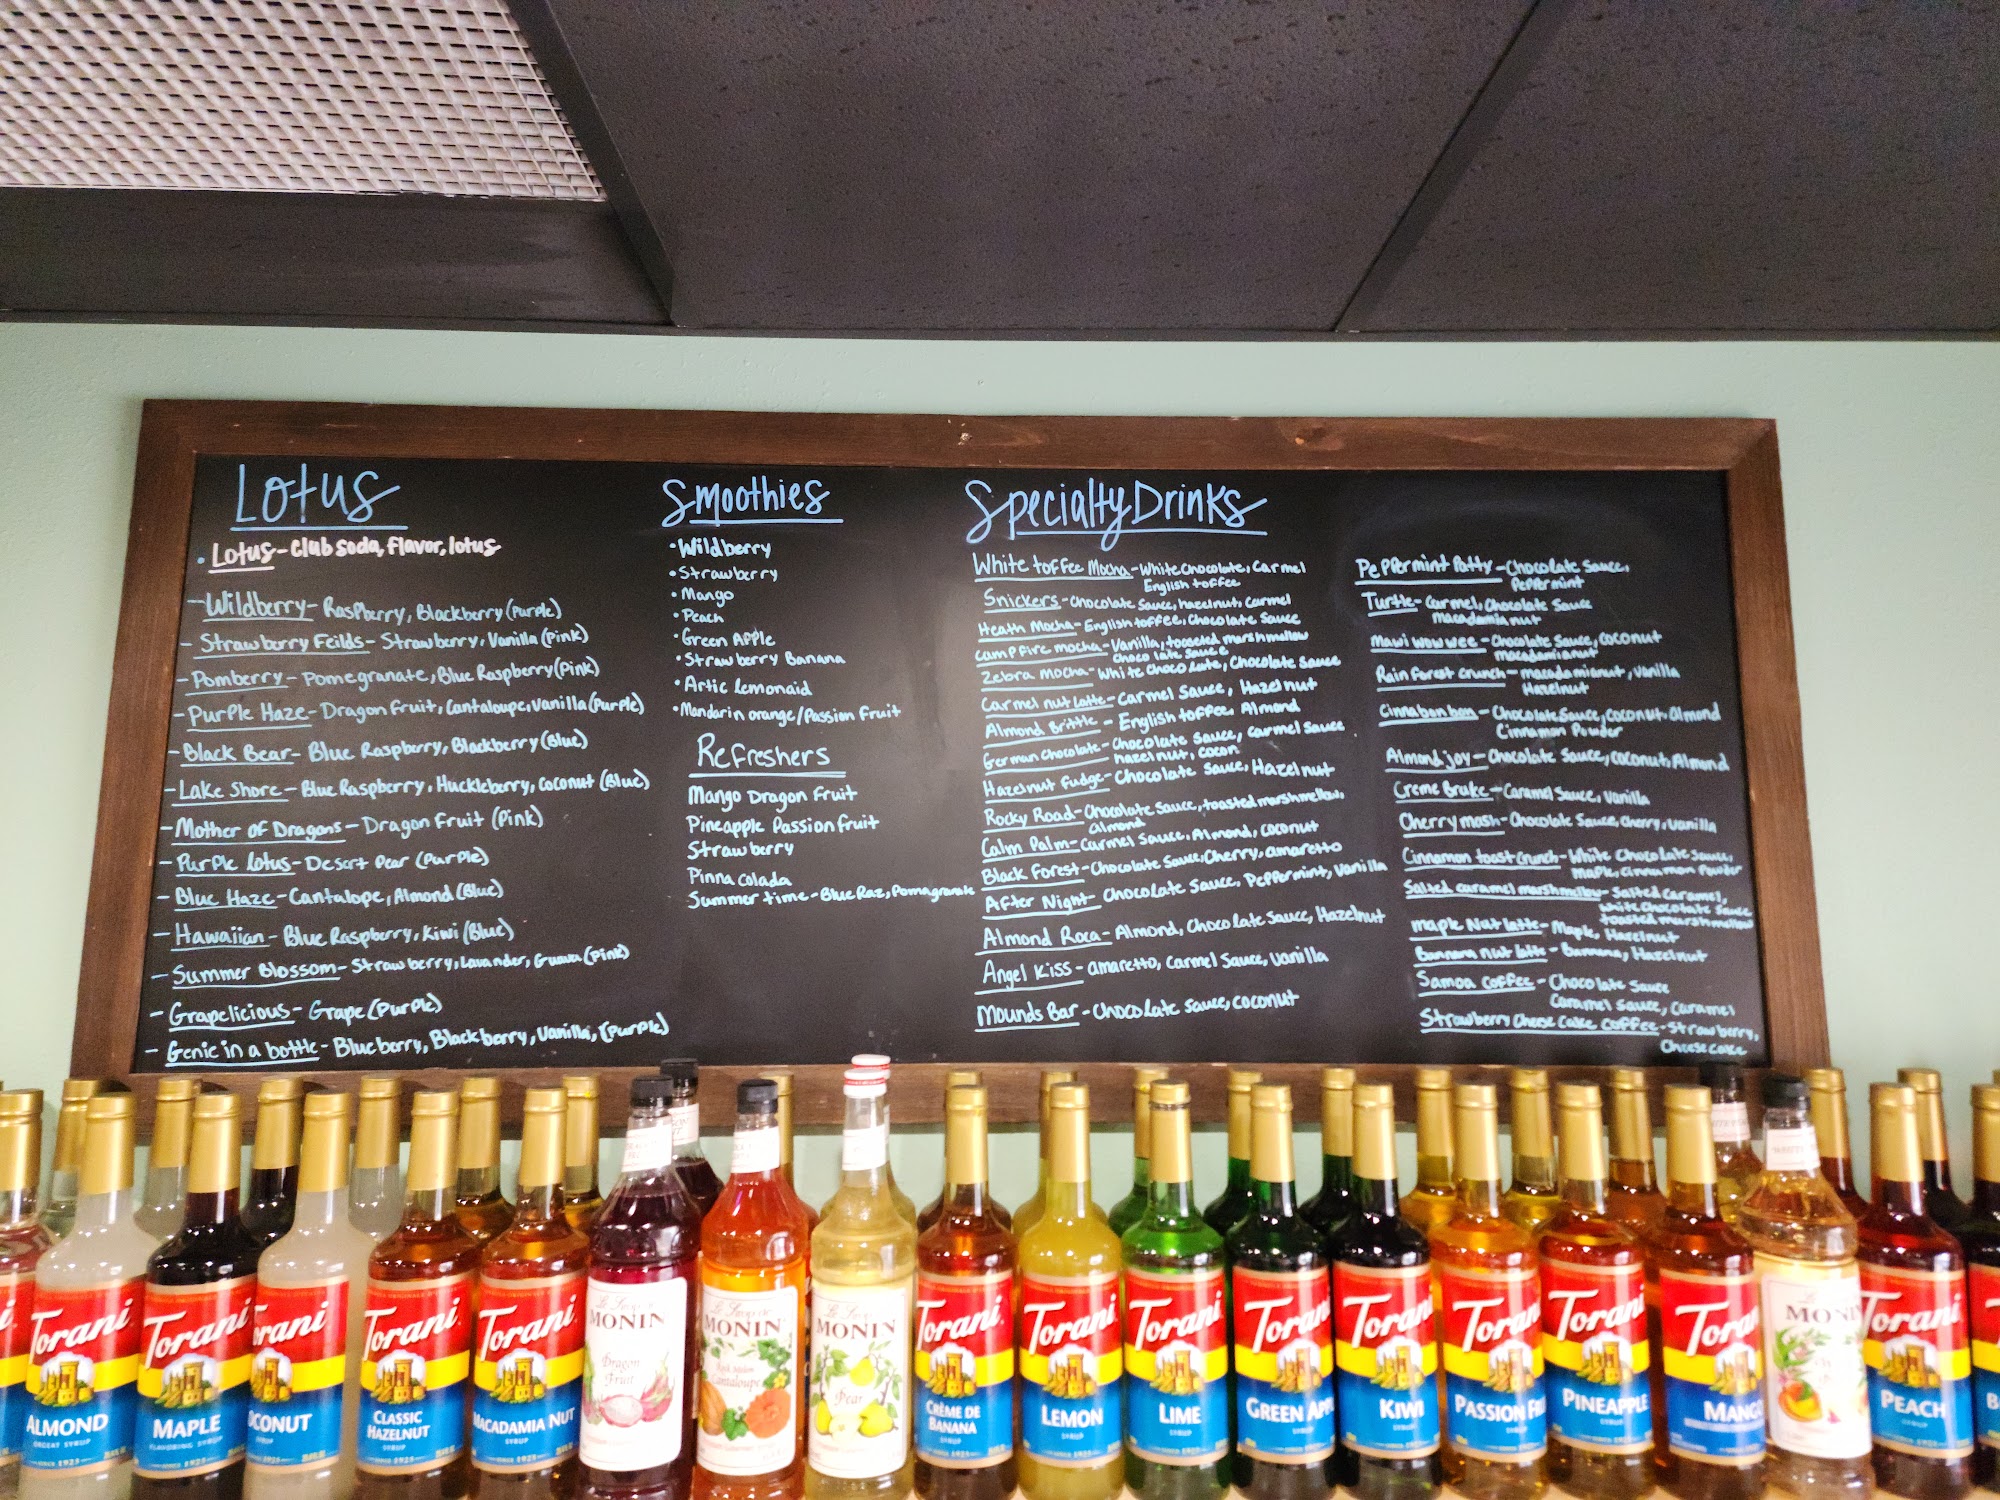 Lotus
Lotus - Club soda, Flavor, lotus
- Wildberry - Raspberry, Blackberry (Purple)
- Strawberry Feilds - Strawberry, Vanilla (Pink)
- Pomberry - Pomegranate, Blue Raspberry (Pink)
- Purple Haze - Dragon Fruit, Cantaloupe, Vanilla (Purple)
- Black Bear - Blue Raspberry, Blackberry (Blue)
- Lake Shore - Blue Raspberry, Huckleberry, Coconut (Blue)
- Mother of Dragons - Dragon Fruit (Pink)
- Purple Lotus - Desart Pear (Purple)
- Blue Haze - Cantalope, Almond (Blue)
- Hawaiian - Blue Raspberry, Kiwi (Blue)
- Summer Blossom - Strawberry, Lavander, Guava (Pink)
- Grapelicious - Grape (Purple)
- Genie in a bottle - Blueberry, Blackberry, Vanilla, (Purple)
Smoothies
• Wildberry
• Strawberry
• Mango
• Peach
• Green Apple
• Strawberry Banana
• Artic lemonaid
• Mandarin orange/Passion Fruit
Refreshers
Mango Dragon Fruit
Pineapple Passion fruit
Strawberry
Pinna Colada
Summer time - Blue Raz, Pomagranate
Specialty Drinks
White toffee Mocha - White Chocolate, Carmel
English toffee
Snickers - Chocolate Sauce, hazelnut, Carmel
Heath Mocha - English toffee, Chocolate Sauce
Campfire mocha - Vanilla, toasted marshmellow
Chocolate Sauce
Zebra Mocha - White Chocolate, Chocolate Sauce
Carmel nut Latte - Carmel Sauce, Hazelnut
Almond Brittle - English toffee, Almond
German Chocolate - Chocolate Sauce, Carmel Sauce
hazelnut, Cocon
Hazelnut Fudge - Chocolate Sauce, Hazelnut
Rocky Road - Chocolate Sauce, toasted marshmellow,
almond
Calm Palm - Carmel Sauce, Almond, Coconut
Black Forest - Chocolate Sauce, Cherry, amaretto
After Night - Chocolate Sauce, Peppermint, Vanilla
Almond Roca - Almond, Chocolate Sauce, Hazelnut
Angel Kiss - amaretto, Carmel Sauce, Vanilla
Mounds Bar - Chocolate Sauce, Coconut
Peppermint Patty - Chocolate Sauce,
Peppermint
Turtle - Carmel, Chocolate Sauce
macadamia nut
Mawi wow wee - Chocolate Sauce, Coconut
macadamia nut
Rain forest Crunch - macadamia nut, Vanilla
Hazelnut
Cinnabon bon - Chocolate Sauce, Coconut, Almond
Cinnamon Powder
Almond joy - Chocolate Sauce, Coconut, Almond
Creme Brule - Caramel Sauce, Vanilla
Cherry mash - Chocolate Sauce, Cherry, Vanilla
Cinnamon toast Crunch - White Chocolate Sauce,
Maple, Cinnamon Powder
Salted caramel marshmellow - Salted Caramel,
White Chocolate Sauce
toasted marshmellow
Maple Nut latte - Maple, Hazelnut
Banana nut latte - Banana, Hazelnut
Samoa Coffee - Chocolate Sauce
Caramel Sauce, Caramel
Strawberry Cheese Cake Coffee - Strawberry,
Cheese cake
Torani ALMOND
Torani MAPLE
OCONUT
Torani CLASSIC HAZELNUT
Torani MACADAMIA NUT
MONIN Dragon Fruit
MONIN Cantaloupe
MONIN Pear
Torani CRÈME DE BANANA
Torani LEMON
Torani LIME
Torani GREEN APP
Torani KIWI
Torani PASSION
Torani PINEAPPLE
Torani MANGO
MONIN
Torani PEACH